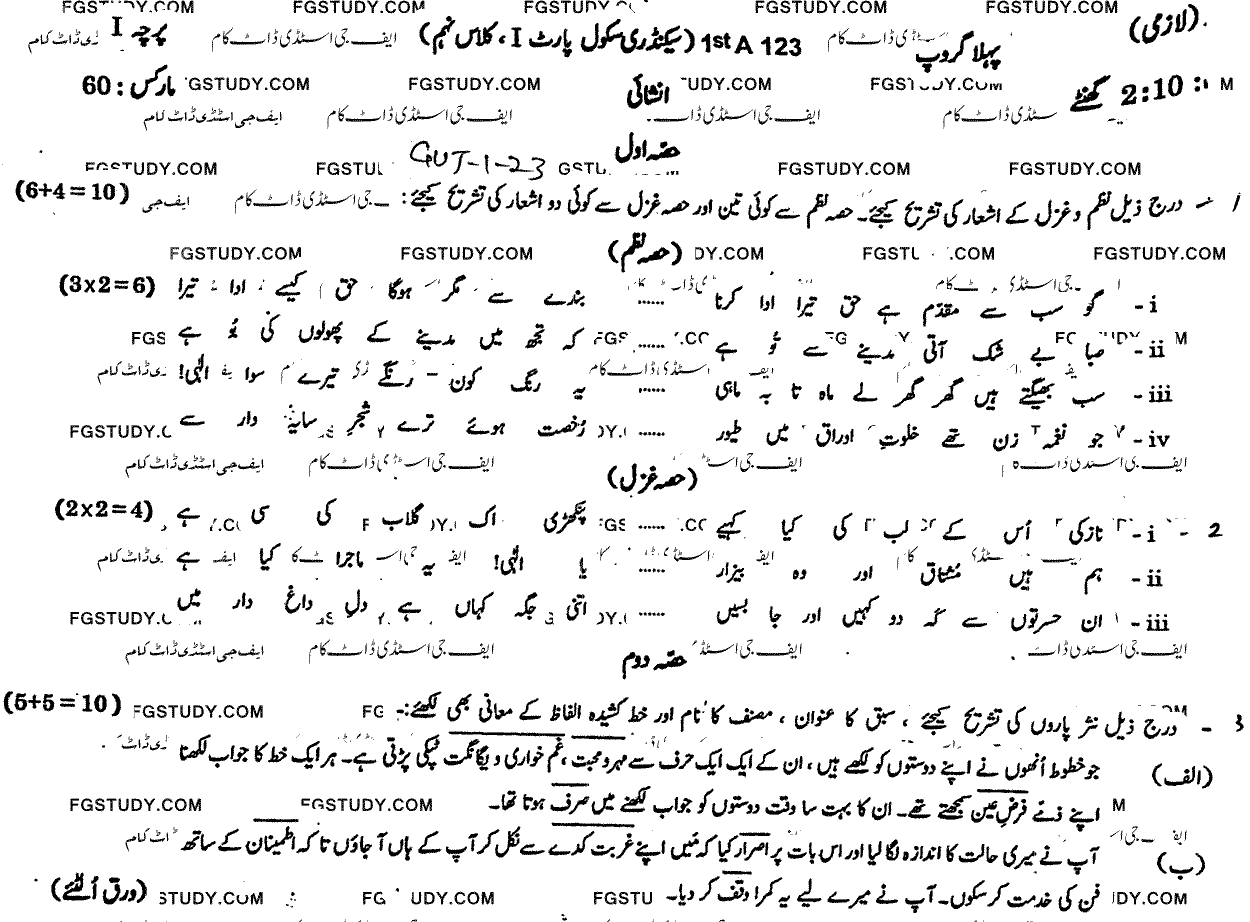 FGSTUDY.COM FGSTUDY.COM FGSTUDY.COM FGSTUDY.COM FGSTUDY.COM
(لازمی) پہلا گروپ 1st A 123 (سیکنڈری سکول پارٹ I ، کلاس نہم) پرچہ I
2:10 گھنٹے انشائی مارکس : 60
حصہ اول
GUJ-1-23
۱ - درج ذیل نظم و غزل کے اشعار کی تشریح کیجئے۔ حصہ نظم سے کوئی تین اور حصہ غزل سے کوئی دو اشعار کی تشریح کیجئے : (6+4=10)
FGSTUDY.COM FGSTUDY.COM (حصہ نظم)
i - گو سب سے مقدّم ہے حق تیرا ادا کرنا ...... بندے سے مگر ہوگا حق کیسے ادا تیرا (3x2=6)
ii - صبا بے شک آتی مدینے سے تُو ہے ...... کہ تجھ میں مدینے کے پھولوں کی بُو ہے
iii - سب بھیگتے ہیں گھر گھر لے ماہ تا بہ ماہی ...... یہ رنگ کون رنگے تیرے سوا الٰہی!
iv - جو نغمہ زن تھے خلوتِ اوراق میں طیور ...... رُخصت ہوئے ترے شجرِ سایہ دار سے
(حصہ غزل)
2 - i - نازکی اُس کے لب کی کیا کہیے ...... پنکھڑی اک گلاب کی سی ہے (2x2=4)
ii - ہم ہیں مُشتاق اور وہ بیزار ...... یا الٰہی! یہ ماجرا کیا ہے
iii - ان حسرتوں سے کہ دو کہیں اور جا بسیں ...... اتنی جگہ کہاں ہے دلِ داغ دار میں
حصہ دوم
3 - درج ذیل نثر پاروں کی تشریح کیجئے ، سبق کا عنوان ، مصنف کا نام اور خط کشیدہ الفاظ کے معانی بھی لکھئے:- (5+5=10)
(الف) جو خطوط اُنھوں نے اپنے دوستوں کو لکھے ہیں، ان کے ایک ایک حرف سے مہرو محبت، غم خواری و یگانگت ٹپکی پڑتی ہے۔ ہر ایک خط کا جواب لکھنا
اپنے ذمّے فرضِ عین سمجھتے تھے۔ ان کا بہت سا وقت دوستوں کو جواب لکھنے میں صرف ہوتا تھا۔
(ب) آپ نے میری حالت کا اندازہ لگا لیا اور اس بات پر اصرار کیا کہ مَیں اپنے غربت کدے سے نکل کر آپ کے ہاں آ جاؤں تا کہ اطمینان کے ساتھ
فن کی خدمت کر سکوں۔ آپ نے میرے لیے یہ کمرا وقف کر دیا۔ (ورق اُلٹئے)